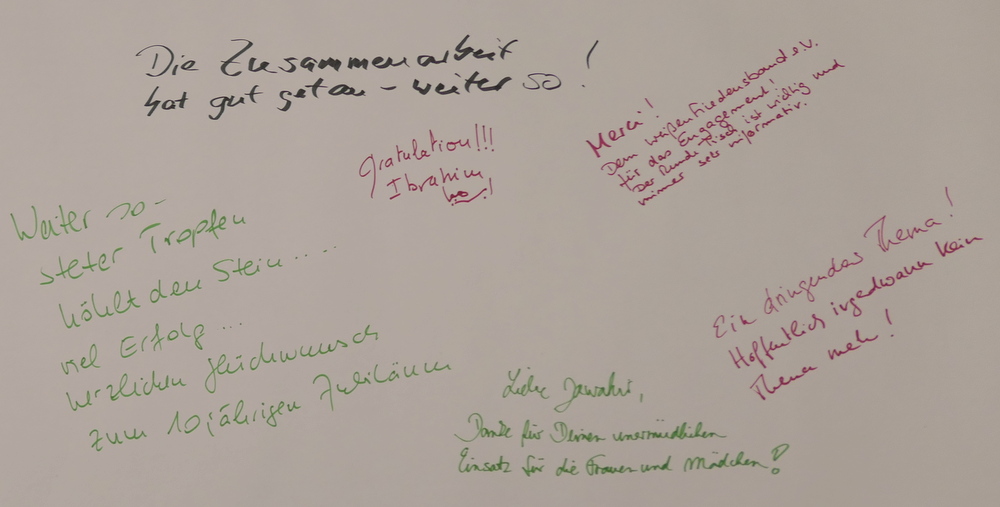 Die Zusammenarbeit
hat gut getan - weiter so!
Merci!
Dem weißen Friedensband e.V.
für das Engagement!
Der Runde Tisch ist wichtig und
immer sehr informativ.
Gratulation!!!
Ibrahim
Weiter so -
steter Tropfen
höhlt den Stein.....
viel Erfolg...
herzlichen Glückwunsch
zum 10jährigen Jubiläum
Ein dringendes Thema!
Hoffentlich irgendwann kein
Thema mehr!
Liebe Jawahir,
Danke für Deinen unermüdlichen
Einsatz für die Frauen und Mädchen!